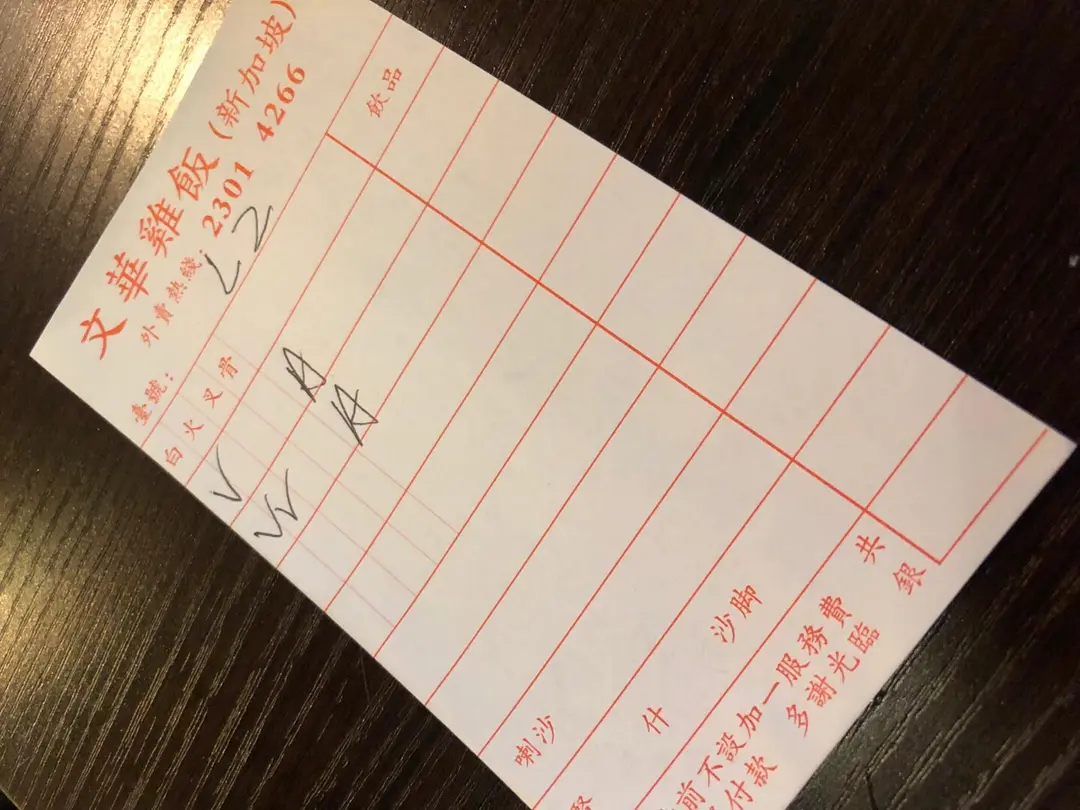 文華雞飯(新加坡)
外賣熱綫: 2301 4266
臺號: L2
飲品
白 火 叉 骨
V
VV
A
A
喇沙
什
沙脚
共銀
前不設加一服務費
付款 多謝光臨